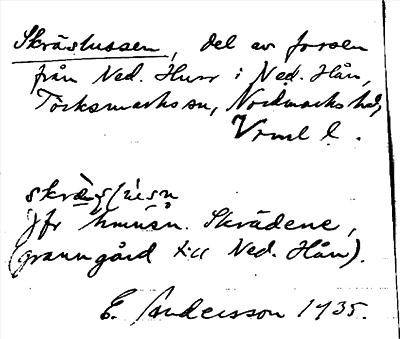 Skräslussen, del av forsen
från Ned. Hurr i Ned. Hån,
Töcksmarks sn, Nordmarks hd,
Vrml l.
Jfr hmnsn. Skrädene,
(granngård till Ned. Hån).
E. Andersson 1935.